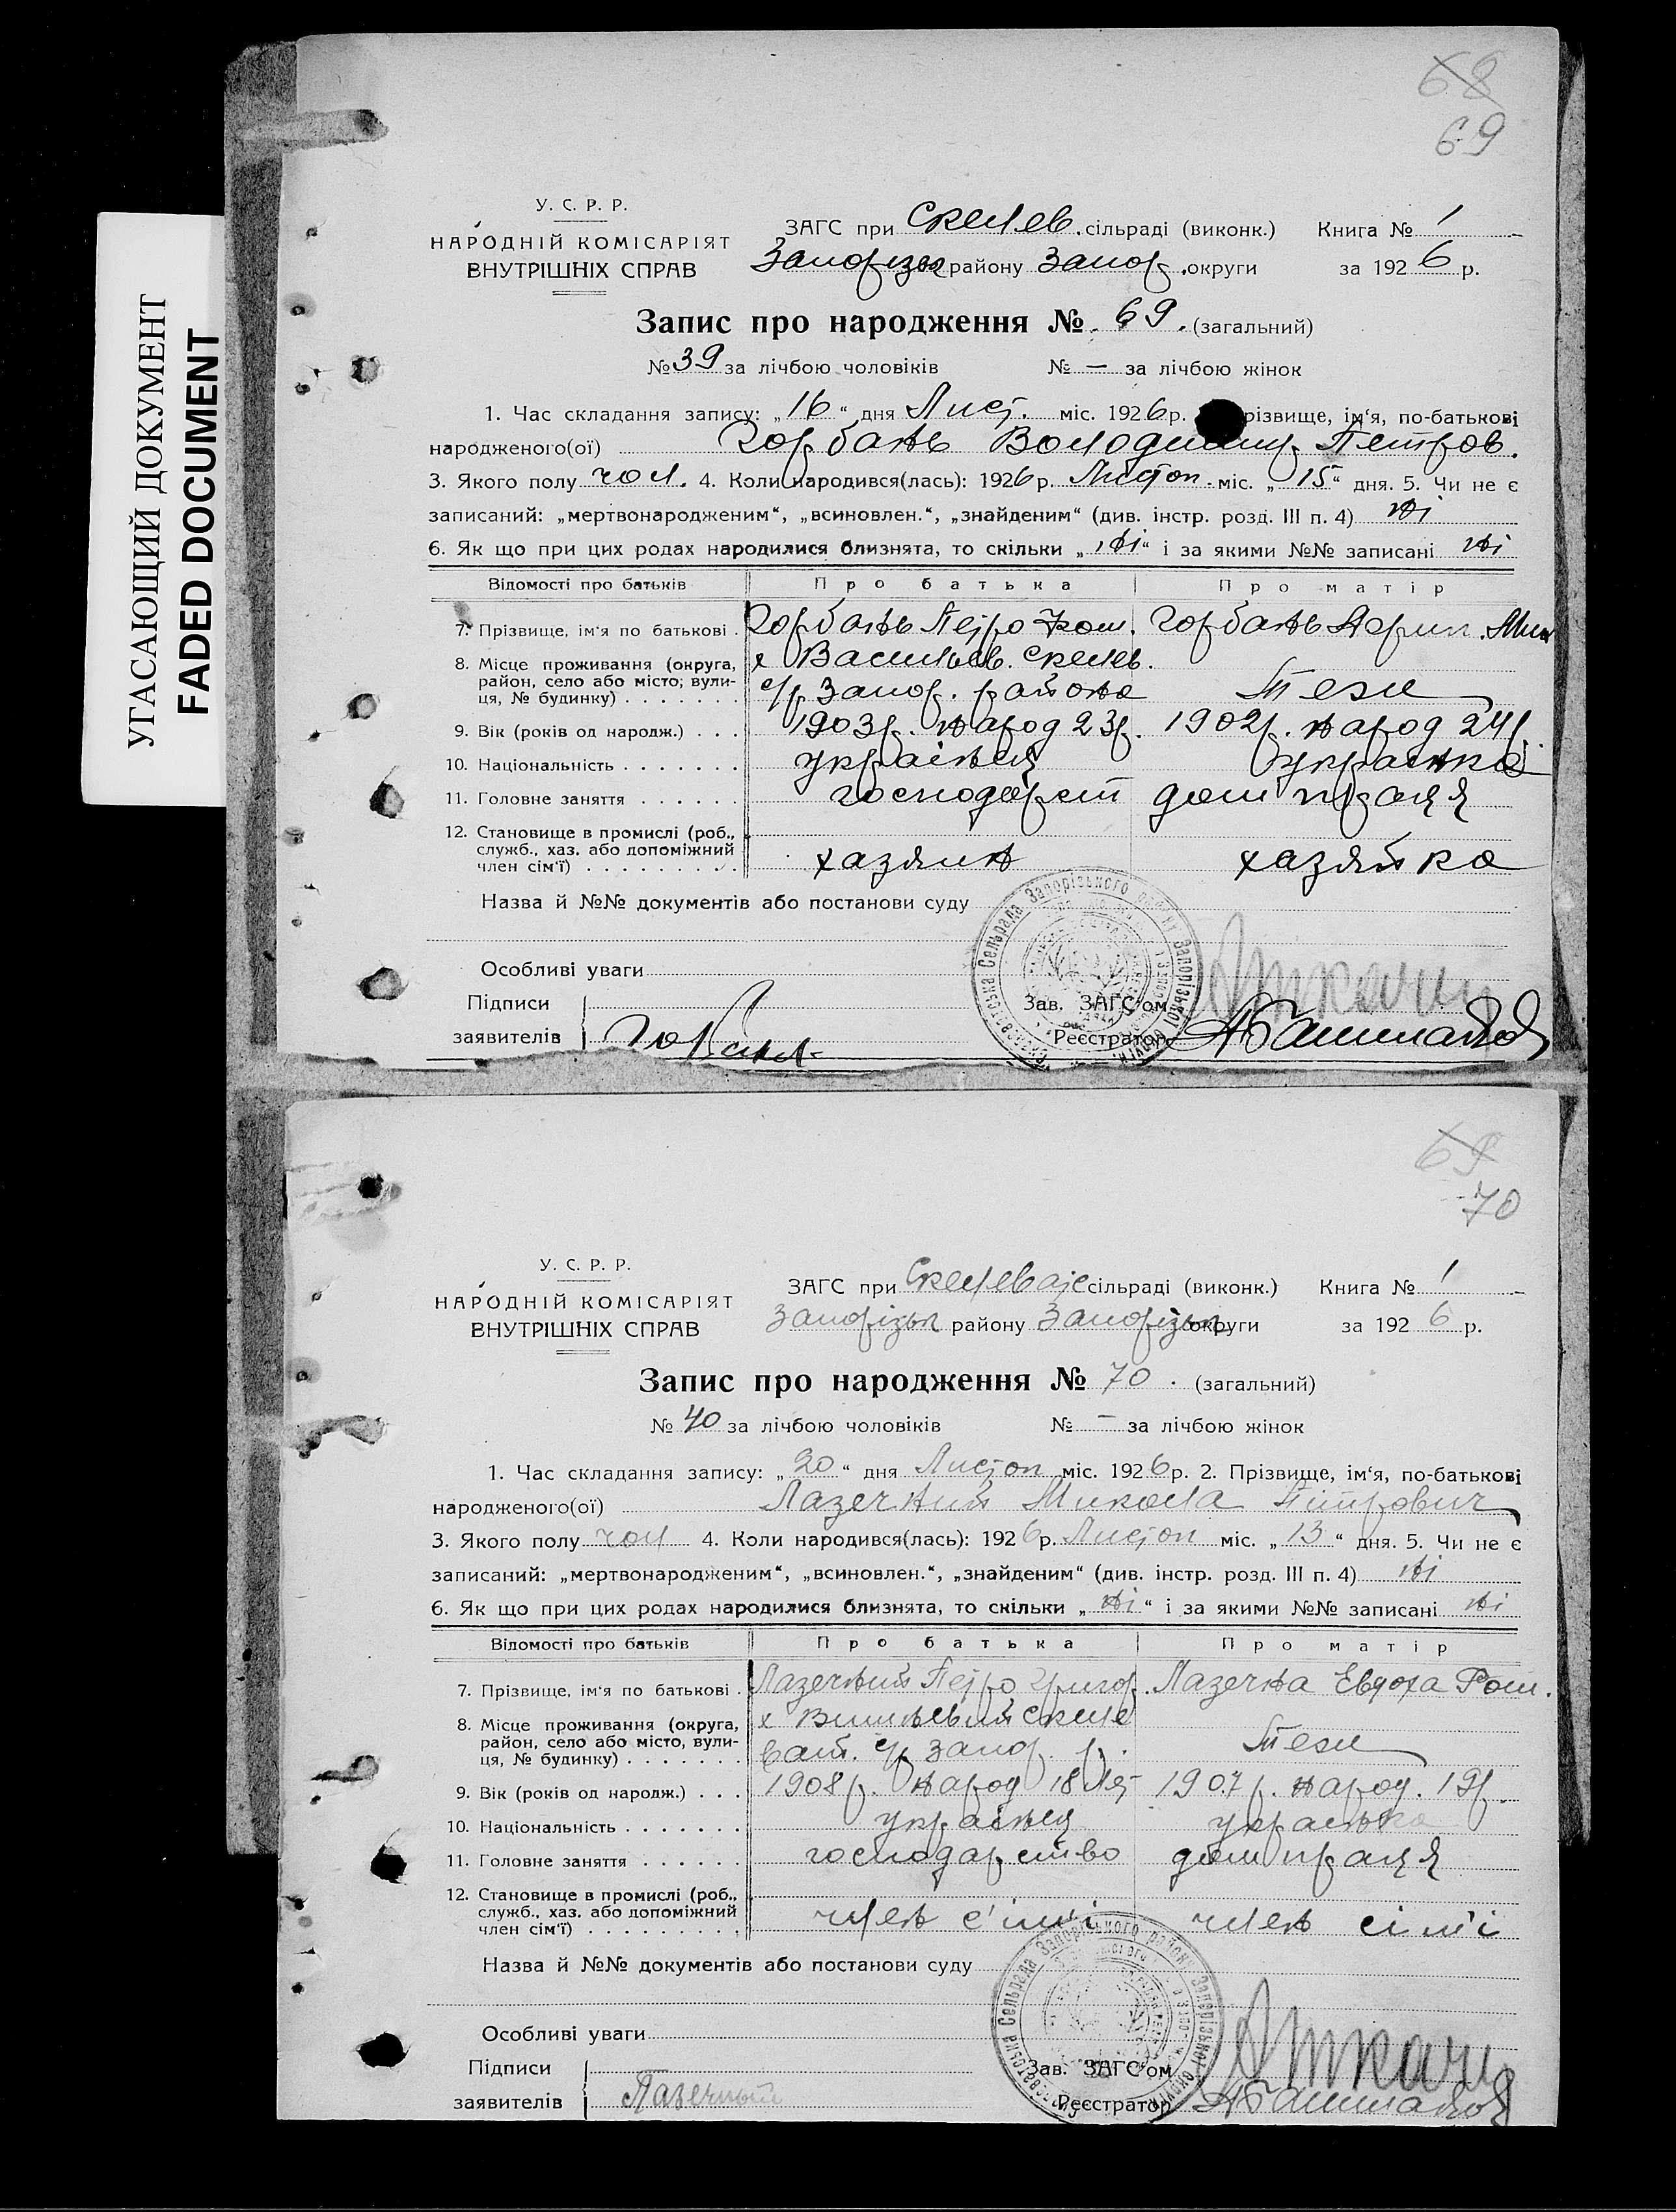 УГАСАЮЩИЙ ДОКУМЕНТ
FADED DOCUMENT
68
69
У. С. Р. Р.
НАРОДНІЙ КОМІСАРІЯТ
ВНУТРІШНІХ СПРАВ
ЗАГС при Скелев. сільраді (виконк.) Книга № 1
Запорізьк району Запор. округи за 1926 р.
Запис про народження № 69. (загальний)
№ 39 за лічбою чоловіків № — за лічбою жінок
1. Час складання запису: „16“ дня Лист. міс. 1926 р. різвище, ім‘я, по-батькові
народженого(ої) Горбань Володимир Петров.
3. Якого полу чол. 4. Коли народився(лась): 1926 р. Листоп. міс. „15“ дня. 5. Чи не є
записаний: „мертвонародженим“, „всиновлен.“, „знайденим“ (див. інстр. розд. III п. 4) ні
6. Як що при цих родах народилися близнята, то скільки „ні“ і за якими №№ записані ні
Відомості про батьків Про батька Про матір
7. Прізвище, ім‘я по батькові . Горбань Петро . Горбань
8. Місце проживання (округа, район, село або місто; вулиця, № будинку) х Васильев. Скелев. с/р Запор. района Теж
9. Вік (років од народж.) . . . 1903 р. народ 23 р. 1902 р. народ 24 р.
10. Національність українец українка
11. Головне заняття господарст дом праця
12. Становище в промислі (роб., служб., хаз. або допоміжний член сім‘ї) хазяин хазяйка
Назва й №№ документів або постанови суду
Особливі уваги
Підписи
заявителів Горбань
Зав. ЗАГС‘ом
Реєстратор
69
70
У. С. Р. Р.
НАРОДНІЙ КОМІСАРІЯТ
ВНУТРІШНІХ СПРАВ
ЗАГС при сільраді (виконк.) Книга № 1
Запорізьк району Запорізьк округи за 1926 р.
Запис про народження № 70. (загальний)
№ 40 за лічбою чоловіків № — за лічбою жінок
1. Час складання запису: „20“ дня Листоп міс. 1926 р. 2. Прізвище, ім‘я, по-батькові
народженого(ої) Лазечний Микола Пітрович
3. Якого полу чол 4. Коли народився(лась): 1926 р. Листоп міс. „13“ дня. 5. Чи не є
записаний: „мертвонародженим“, „всиновлен.“, „знайденим“ (див. інстр. розд. III п. 4) ні
6. Як що при цих родах народилися близнята, то скільки „ні“ і за якими №№ записані ні
Відомості про батьків Про батька Про матір
7. Прізвище, ім‘я по батькові . Лазечний Петро Григор. Лазечна Евдоха Ром.
8. Місце проживання (округа, район, село або місто, вулиця, № будинку) х Скелеват. с/р Запор. р. Теж
9. Вік (років од народж.) . . . 1908 р. народ 18 літ 1907 р. народ. 19 р.
10. Національність українец українка
11. Головне заняття господарство дом праця
12. Становище в промислі (роб., служб., хаз. або допоміжний член сім‘ї) член сім'ї член сім'ї
Назва й №№ документів або постанови суду
Особливі уваги
Підписи
заявителів Лазечный
Зав. ЗАГС‘ом
Реєстратор